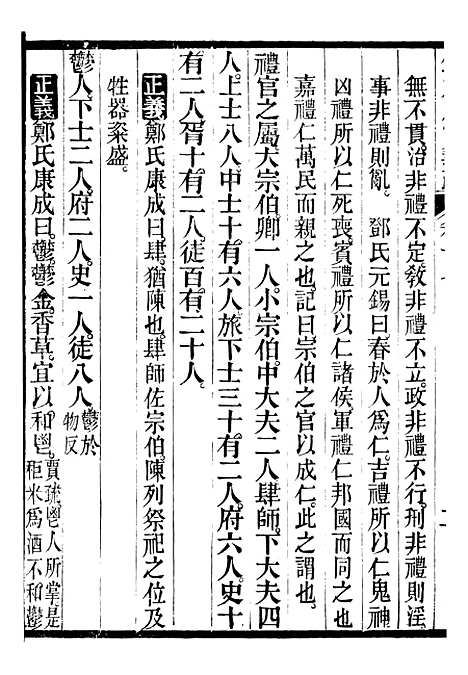 無不貫治非禮不定敎非禮不立政非禮不行刑非禮則淫
事非禮則亂 鄧氏元錫曰春於人爲仁吉禮所以仁鬼神
凶禮所以仁死喪賓禮所以仁諸侯軍禮仁邦國而同之也
嘉禮仁萬民而親之也記曰宗伯之官以成仁此之謂也
禮官之屬大宗伯卿一人小宗伯中大夫二人肆師下大夫四
人上士八人中士十有六人旅下士三十有二人府六人史十
有二人胥十有二人徒百有二十人
正義鄭氏康成曰肆猶陳也肆師佐宗伯陳列祭祀之位及
牲器粢盛
鬱人下士二人府二人史一人徒八人鬱於物反
正義鄭氏康成曰鬱鬱金香草宜以和鬯賈疏鬯人所掌是秬米爲酒不和鬱